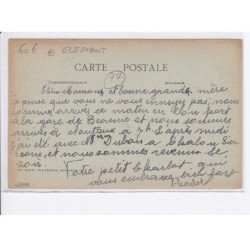 606 @ ELEPHANT
CARTE POSTALE
77
CORRESPONDANCE ADRESSE
Chère maman et bonne grande mère
je pense que vous ne vous ennuyez pas, nous
sommes arrivés ce matin en bon port
à la gare de Beaune et nous sommes
arrivés à à 7h. L'après midi
j'ai été avec Mr Dubois à Chalon Sur
Saône, et nous sommes revenus le
soir.
Votre petit Charlot qui
vous embrasse bien fort
Charlot